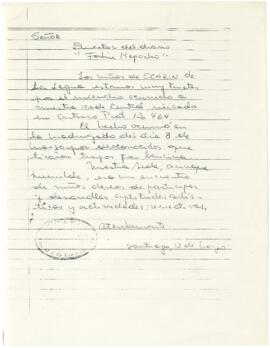 Señor
Director del diario
"Fortín Mapocho"
Los niños de OCHRIN de
La Legua estamos muy tristes
por el incendio ocurrido a
nuestra sede central, ubicado
en Arturo Prat Nº 464.
El hecho ocurrió en
la madrugada del día 8 de
mayo por desconocidos que
tiraron trapos con bencina
Nuestra sede, aunque
humilde, es un encuentro
de niños deseosos de participar
y desarrollar aptitudes artís-
ticas y actividades recreativas.
Atentamente
Santiago, 12 de mayo